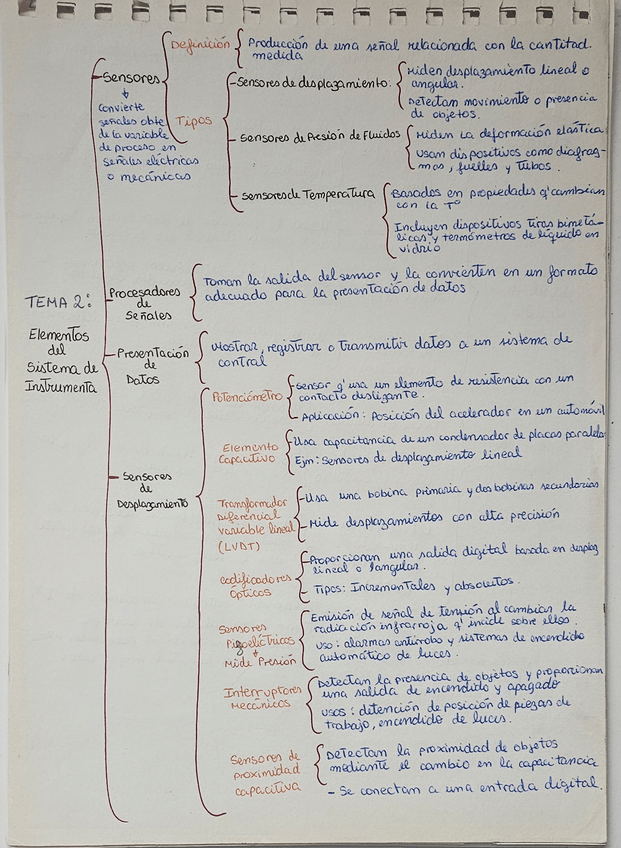 TEMA 2:
Elementos
del
Sistema de
Instrumenta
Sensores
Convierte
señales obte
de la variable
de proceso en
señales eléctricas
o mecánicas
Definición
Producción de una señal relacionada con la cantitad.
medida
Tipos
Sensores de desplazamiento:
Miden desplazamiento lineal o
angular.
Detectan movimiento o presencia
de objetos.
Sensores de Presión de Fluidos
Miden la deformación elástica
usan dispositivos como diafrag-
mas, fuelles y tubos.
Sensores de Temperatura
Basados en propiedades q' cambian
con la T°
Incluyen dispositivos tiras bimetá-
licas y termómetros de líquido en
vidrio
Procesadores
de
Señales
Toman la salida del sensor y la convierten en un formato
adecuado para la presentación de datos
Presentación
de
Datos
Mostrar, registrar o transmitir datos a un sistema de
control
Sensores
de
Desplazamiento
Potenciómetro
Sensor q' usa un elemento de resistencia con un
contacto desligante.
Aplicación: Posición del acelerador en un automóvil
Elemento
Capacitivo
Usa capacitancia de un condensador de placas paralelas
Ejm: Sensores de desplazamiento lineal
Transformador
Diferencial
variable lineal
(LVDT)
Usa una bobina primaria y dos bobinas secundarias
Mide desplazamientos con alta precisión
Codificadores
Ópticos
Proporcionan una salida digital basada en desplaz
lineal o angular.
Tipos: Incrementales y absolutos.
Sensores
Piezoeléctricos
Mide Presión
Emisión de señal de tensión al cambiar la
radiación infrarroja q' incide sobre ellos.
uso: alarmas antirrobo y sistemas de encendido
automático de luces.
Interruptores
Mecánicos
Detectan la presencia de objetos y proporcionan
una salida de encendido y apagado
usos: detención de posición de piezas de
trabajo, encendido de luces.
Sensores de
proximidad
capacitiva
Detectan la proximidad de objetos
mediante el cambio en la capacitancia
- Se conectan a una entrada digital.